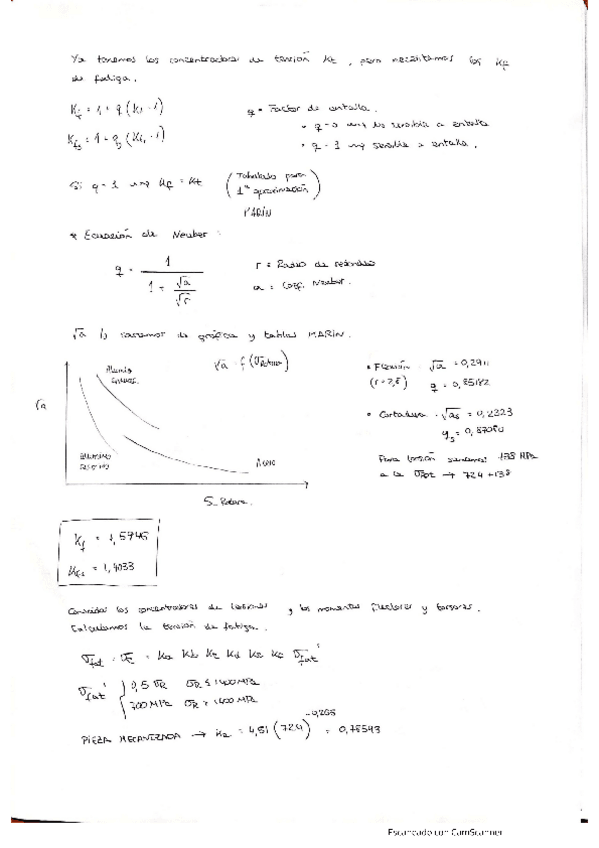 Ya tenemos los concentradores de tensión Kt, pero necesitamos los Kf
de fatiga.
Kf = 1 + q (Kt - 1)
Kfs = 1 + qs (Kts - 1)
q = Factor de entalla.
• q = 0 no sensible a entalla
• q = 1 sensible a entalla.
Si q = 1 Kf = Kt (Tabulado para 1ª aproximación)
MARIN
* Ecuación de Neuber:
q = 1 / (1 + √a / √r)
r = Radio de redondeo
a = Coef. Neuber.
√a de gráfica y tablas MARIN.
√a = f (σRotura)
√a
Aluminio
Aluminio
Acero
S Rotura.
• Flexión √a = 0,2911
(r = 2,8) q = 0,85182
• Cortadura √as = 0,2323
qs = 0,87080
Para torsión 138 MPa
a la → 724 + 138
Kf = 1,5746
Kfs = 1,4033
Conocidos los concentradores de tensiones, y los momentos flectores y torsores.
Calculamos la tensión de fatiga.
σfat = = Ka Kb Kc Kd Ke σfat'
σfat' { 0,5 σR σR ≤ 1400 MPa
700 MPa σR > 1400 MPa
PIEZA MECANIZADA → Ka = 4,51 (724)^-0,265 = 0,78593
Escaneado con CamScanner